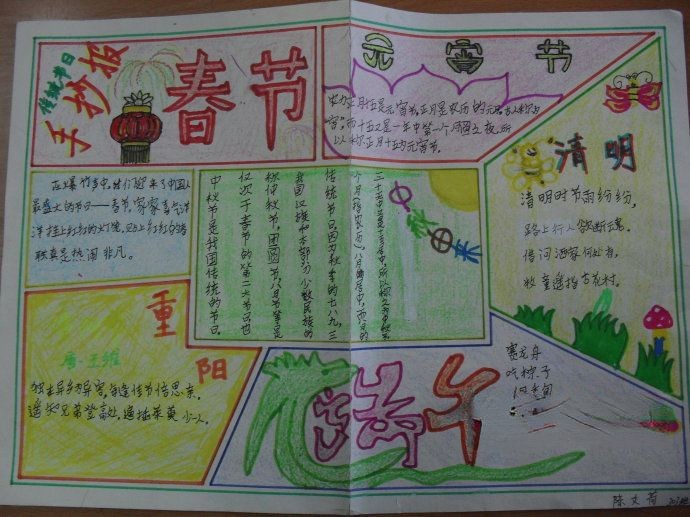 传统节日
手抄报
春节
在爆竹声中,我们迎来了中国人
最盛大的节日——春节,家家喜气洋
洋挂上红红的灯笼,贴上红红的春
联真是热闹非凡。
元宵节
农历正月十五是元宵节,正月是农历的元月,古人称夜为
"宵",而十五又是一年中第一个月圆之夜,所
以称正月十五为元宵节。
清明
清明时节雨纷纷,
路上行人欲断魂。
借问酒家何处有,
牧童遥指杏花村。
中秋节是我国传统的节日
仅次于春节的第二大节日也
称仲秋节,团圆节,八月节等是
我国汉族和大部分少数民族的
传统节日因为秋季的七八九,三
重阳
唐·王维
独在异乡为异客,每逢佳节倍思亲。
遥知兄弟登高处,遍插茱萸少一人。
端午
赛龙舟
吃粽子
陈文荷